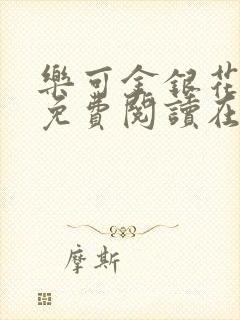 樂可金銀花
免費閱讀在
摩斯